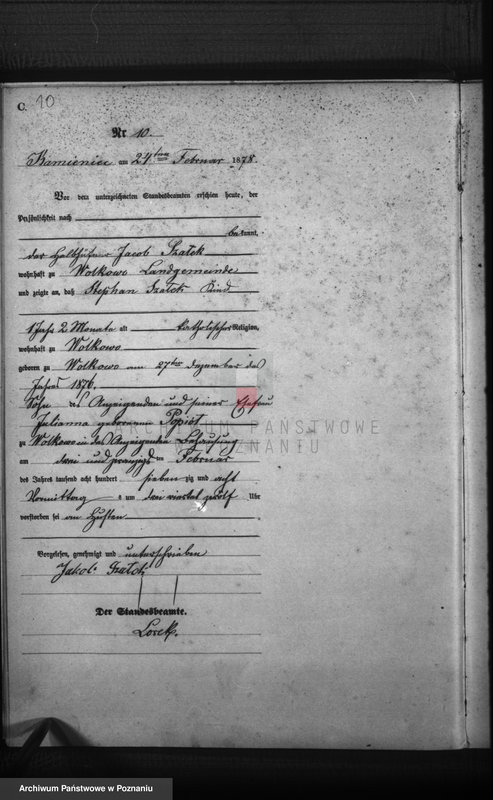 C. 10
Nr 10.
Kamieniec am 24ten Februar 1878.
Vor dem unterzeichneten Standesbeamten erschien heute, der
Persönlichkeit nach
bekannt,
der Halbhüfner Jacob Szałek
wohnhaft zu Wolkowo Landgemeinde
und zeigte an, daß Stephan Szałek Kind
1 Jahr 2 Monate alt katholischer Religion,
wohnhaft zu Wolkowo
geboren zu Wolkowo am 27ten Dezember des
Jahres 1876.
Sohn des Anzeigenden und seiner Ehefrau
Julianna geborenen
zu Wolkowo in des Anzeigenden Behausung
am drei und zwanzigsten Februar
des Jahres tausend acht hundert sieben zig und acht
Vormittag s um drei viertel zwölf Uhr
verstorben sei am Husten
Vorgelesen, genehmigt und unterschrieben
Jakob Szałek
Der Standesbeamte.
ARCHIWUM PAŃSTWOWE
W POZNANIU
Archiwum Państwowe w Poznaniu